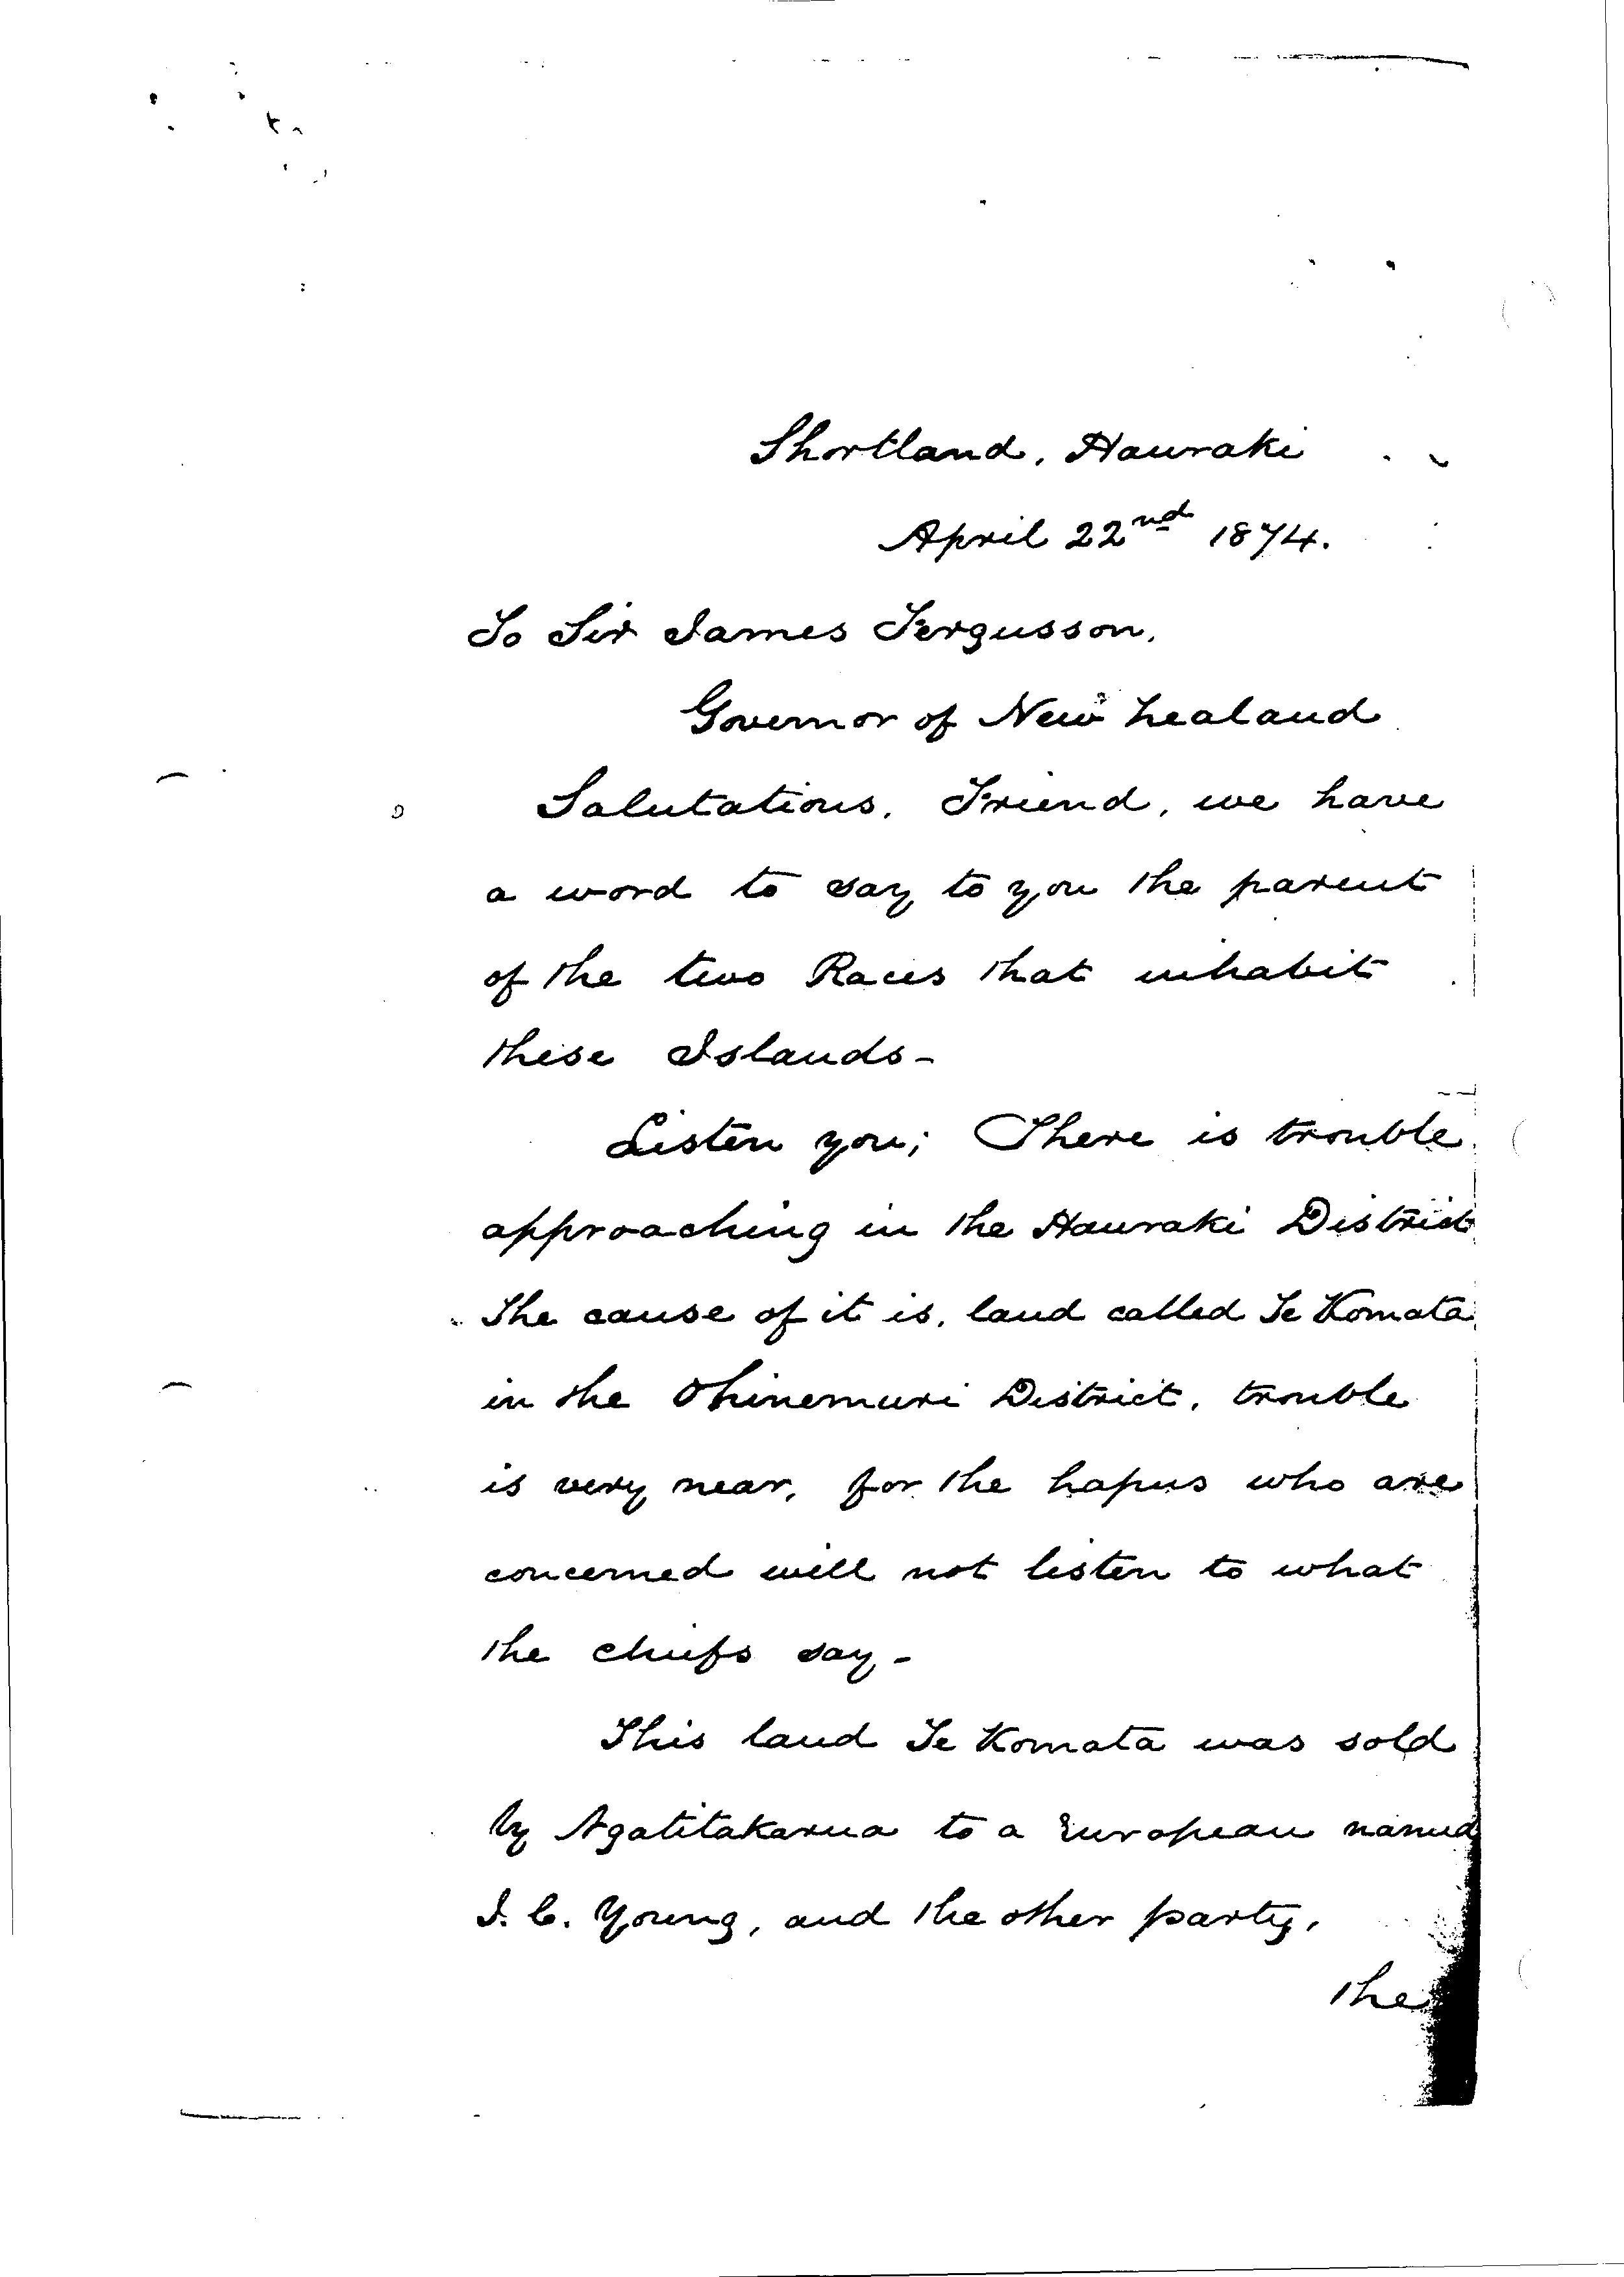 Shortland, Hauraki
April 22nd 1874.
To Sir James Fergusson,
Governor of New Zealand
Salutations. Friend, we have
a word to say to you the parent
of the two Races that inhabit
these Islands-
Listen you; There is trouble
approaching in the Hauraki District
The cause of it is, land called Te Komata
in the Ohinemuri District, trouble
is very near, for the hapus who are
concerned will not listen to what
the chiefs say-
This land Te Komata was sold
by Ngatitakarua to a European named
J. C. Young, and the other party,
the